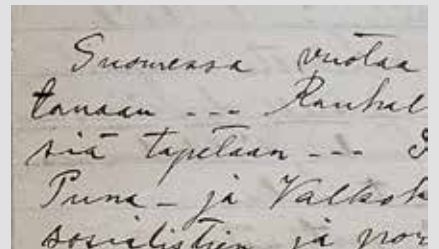 Suomessa vuotaa
tänään --- Rauhal
siä tapetaan ---
Puna- ja Valkok
sosialistien ja por